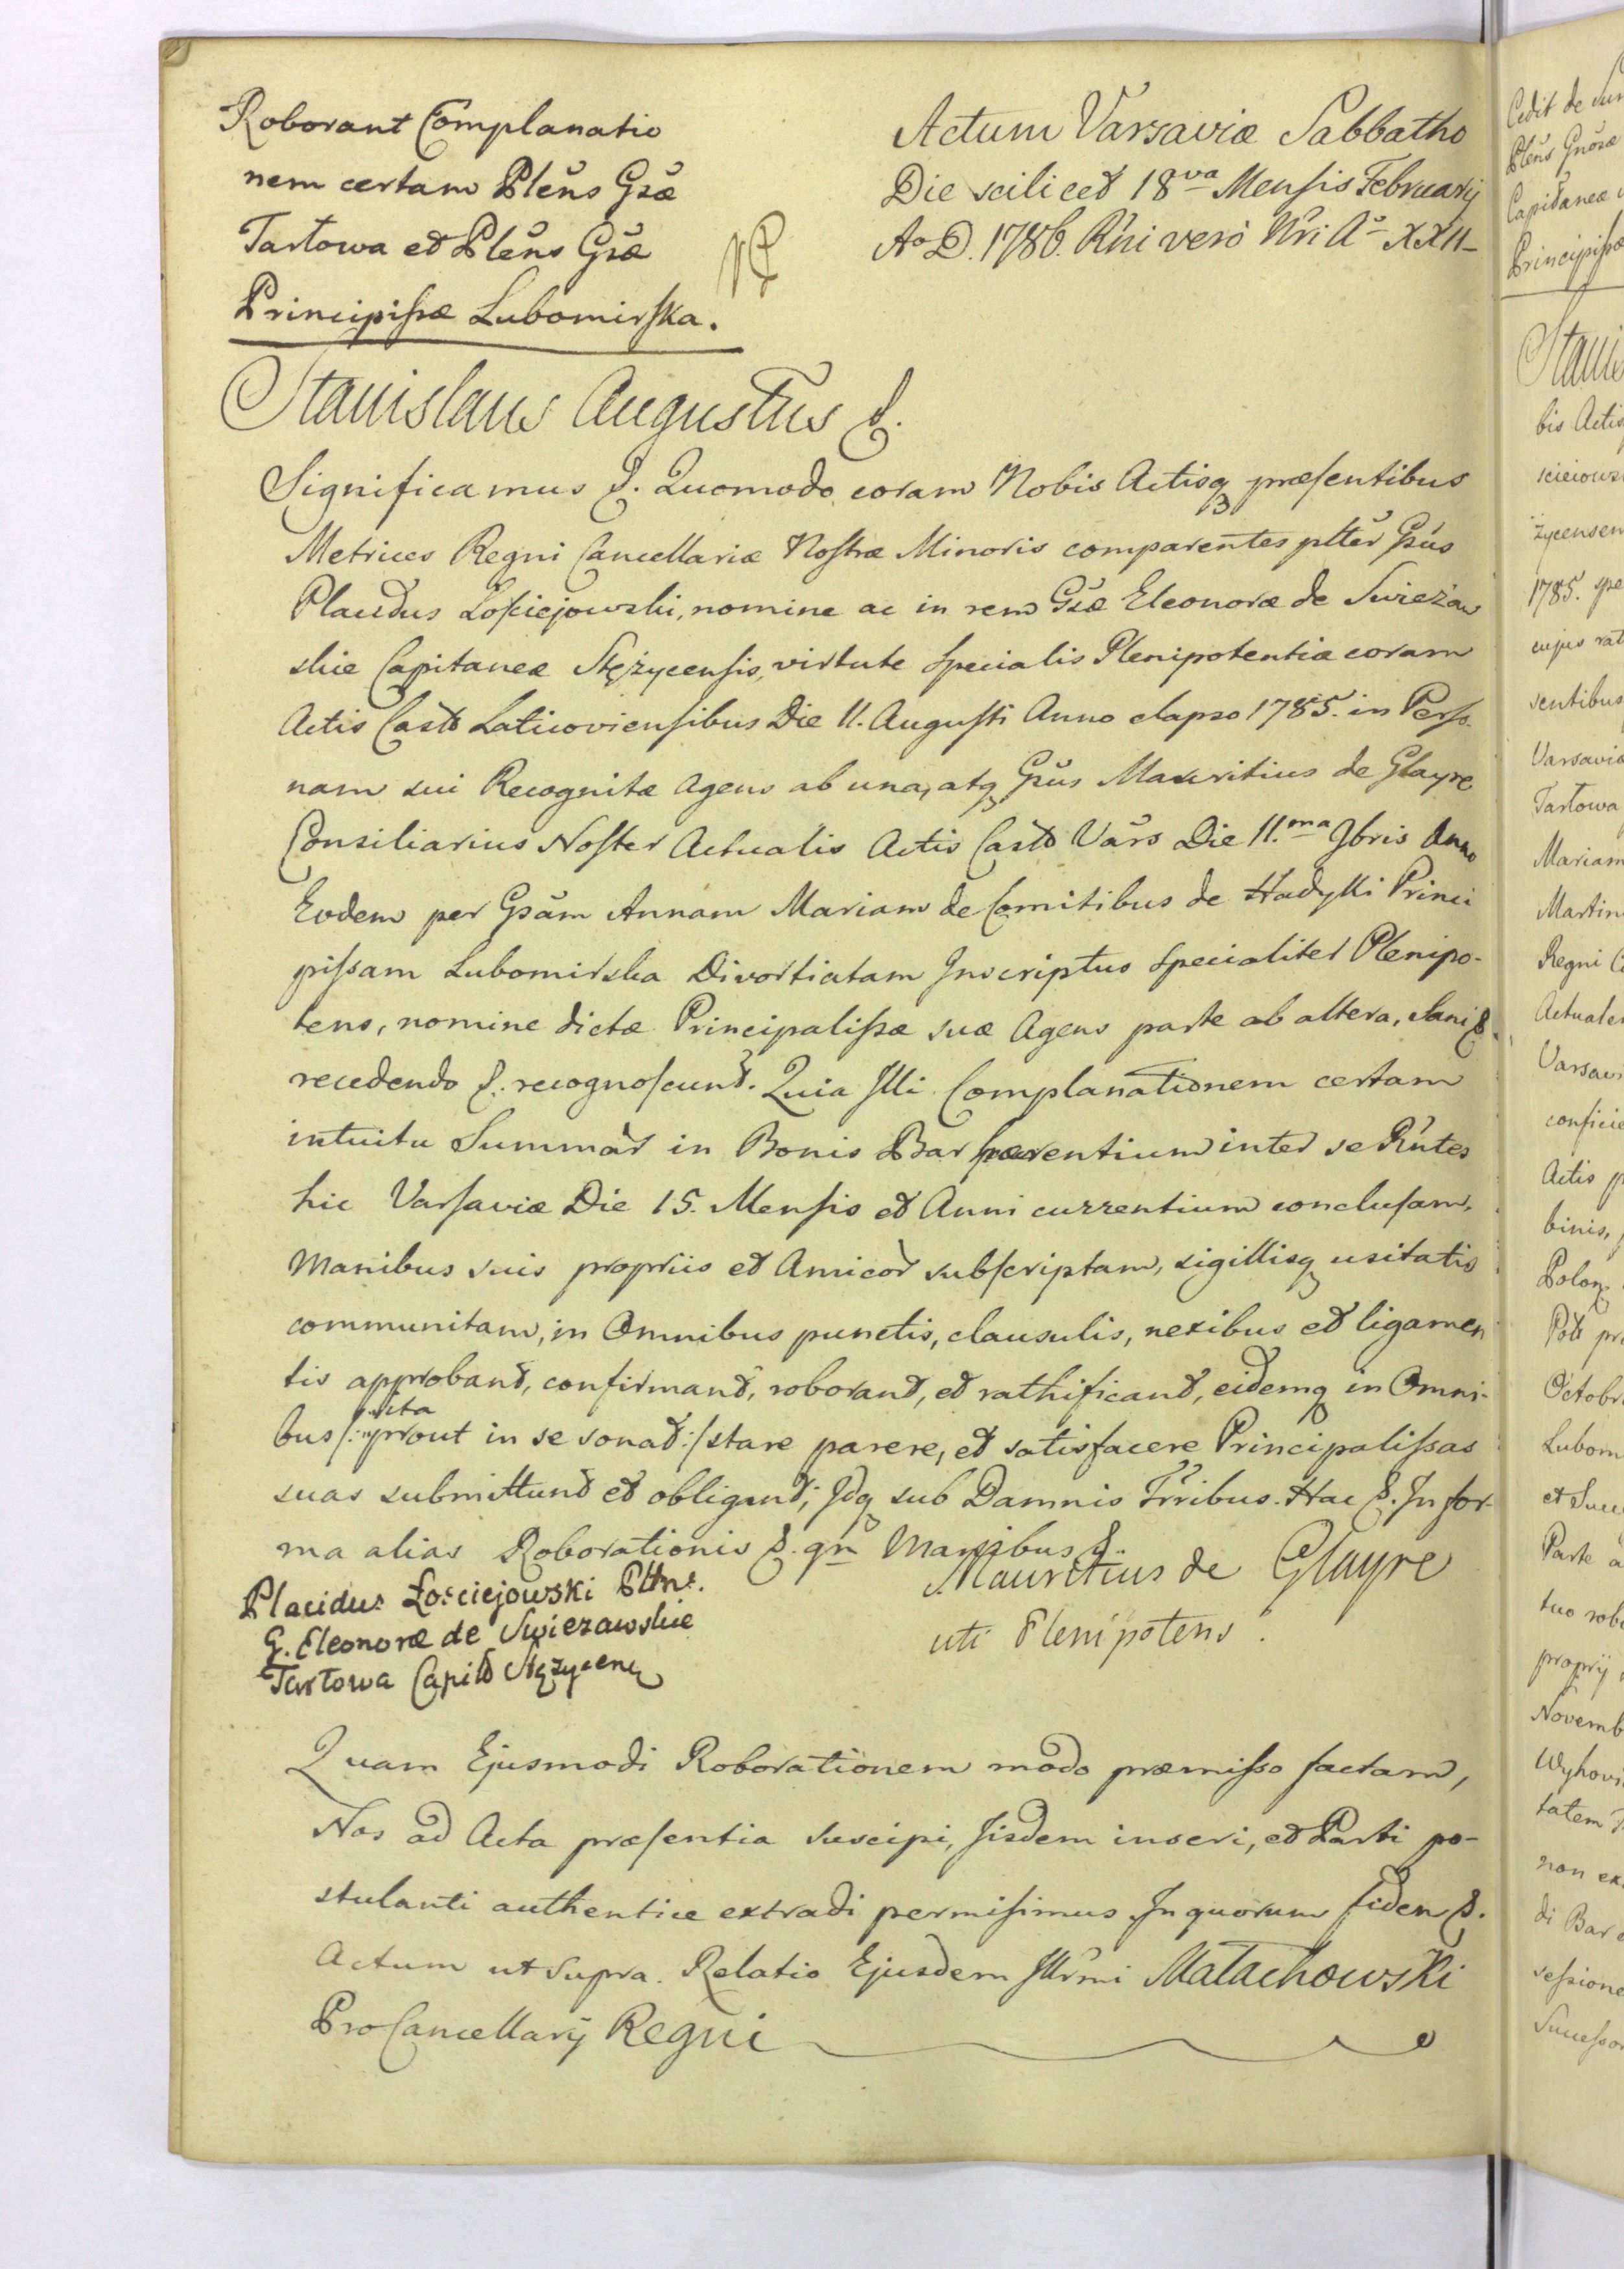 Roborant Complanatio
nem certam Pleñs Gsæ
Tartowa et Pleñs Gsæ
Principissæ Lubomirska.
Actum Varsaviæ Sabbatho
Die scilicet 18va Mensis Februarij
Ao D. 1786. Rñi verò Nri Aō XXII
Stanislaus Augustus &.
Significamus &. Quomodo coram Nobis Actisq præsentibus
Metrices Regni Cancellariæ Nostræ Minoris comparentes plter Gsus
Placidus Łosciejowski, nomine ac in rem Gsæ Eleonoræ de Swieżaw
skie Capitaneæ Stężycensis, virtute specialis Plenipotentiæ coram
Actis Castr Laticoviensibus Die 11. Augusti Anno elapso 1785. in Perso
nam sui Recognitæ Agens ab una, atq Gsus Mauritius de Glayre
Consiliarius Noster Actualis Actis Castr Vars Die 11.ma 9bris Anno
Eodem per Gsam Annam Mariam de Comitibus de Hadyki Princi
pissam Lubomirska Divortiatam Inscriptus specialiter Plenipo-
tens, nomine dictæ Principalissæ suæ Agens parte ab altera, sani &.
recedendo &. recognoscunt. Quia Illi Complanationem certam
intuitu Summar in Bonis Bar hærentium inter se Rñtes
hic Varsaviæ Die 15. Mensis et Anni currentium conclusam,
Manibus suis propriis et Amicor subscriptam, sigillisq usitatis
communitam, in Omnibus punctis, clausulis, nexibus et ligamen
tis approbant, confirmant, roborant, et rathificant, eidemq in Omni-
bus /: prout in se sonat :/ stare parere, et satisfacere Principalissas
suas submittunt et obligant; Idq sub Damnis Trribus. Hac &. In for-
ma alias Roborationis &. qm Manibus &.
Placidus Łosciejowski Pltns.
G. Eleonoræ de Swiezawskie
Tartowa Capit Stęzycen
Mauritius de Glayre
uti Plenipotens.
Quam Ejusmodi Roborationem modo præmisso factam,
Nos ad Acta præsentia suscipi, Iisdem inseri, et Parti po-
stulanti authentice extradi permisimus In quorum fidem &.
Actum ut supra. Relatio Ejusdem Illrmi Małachowski
ProCancellarij Regni
Stanis
bis Actis
zycensem
1785. spe
cujus rat
sentibus
Varsaviæ
Tartowa
Mariam
Martin
Regni
Varsavi
conficie
Actis
binis,
Polon
Octobr
Lubom
et Succ
Parte a
tuo robo
proprij
Novemb
tatem
non ex
di Bar
sessione
Successor